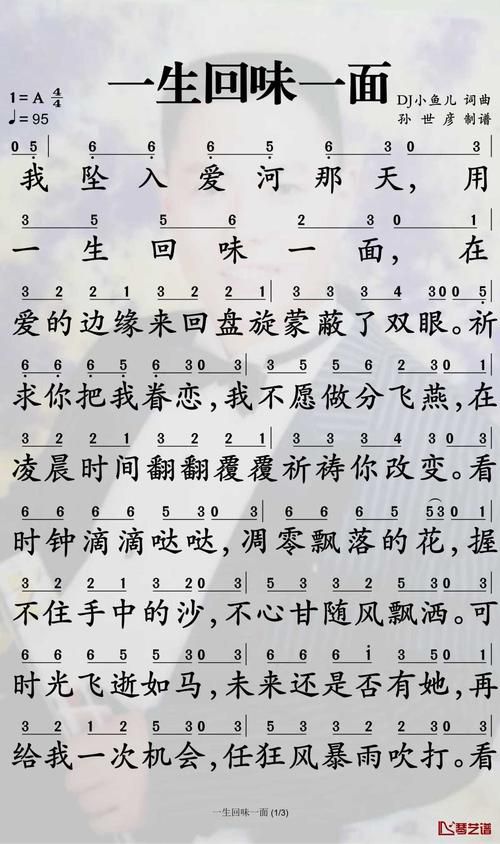 一生回味一面
1=A 4/4
♩=95
DJ小鱼儿 词曲
孙世彦 制谱
0 5 6 6 5 6 6 3 0 3
我坠入爱河那天，用
3 5 5 6 2 3 0 1
一生回味一面，在
3 2 2 1 3 2 2 1 3 3 3 4 3 0 0 5
爱的边缘来回盘旋蒙蔽了双眼。祈
6 6 6 5 6 3 0 3 3 5 5 6 2 3 0 1
求你把我眷恋，我不愿做分飞燕，在
3 2 2 1 3 2 2 1 3 3 3 4 3 0 3
凌晨时间翻翻覆覆祈祷你改变。看
6 6 6 5 6 3 0 3 6 6 6 5 6 5 3 0 1
时钟滴滴哒哒，凋零飘落的花，握
2 2 2 1 3 2 0 3 2 2 2 1 2 3 0 3
不住手中的沙，不心甘随风飘洒。可
6 6 6 5 5 3 0 3 6 6 6 i 5 3 0 3
时光飞逝如马，未来还是否有她，再
3 2 1 2 5 3 0 3 2 2 2 1 2 1 0 3
给我一次机会，任狂风暴雨吹打。看
一生回味一面 (1/3)
琴艺谱